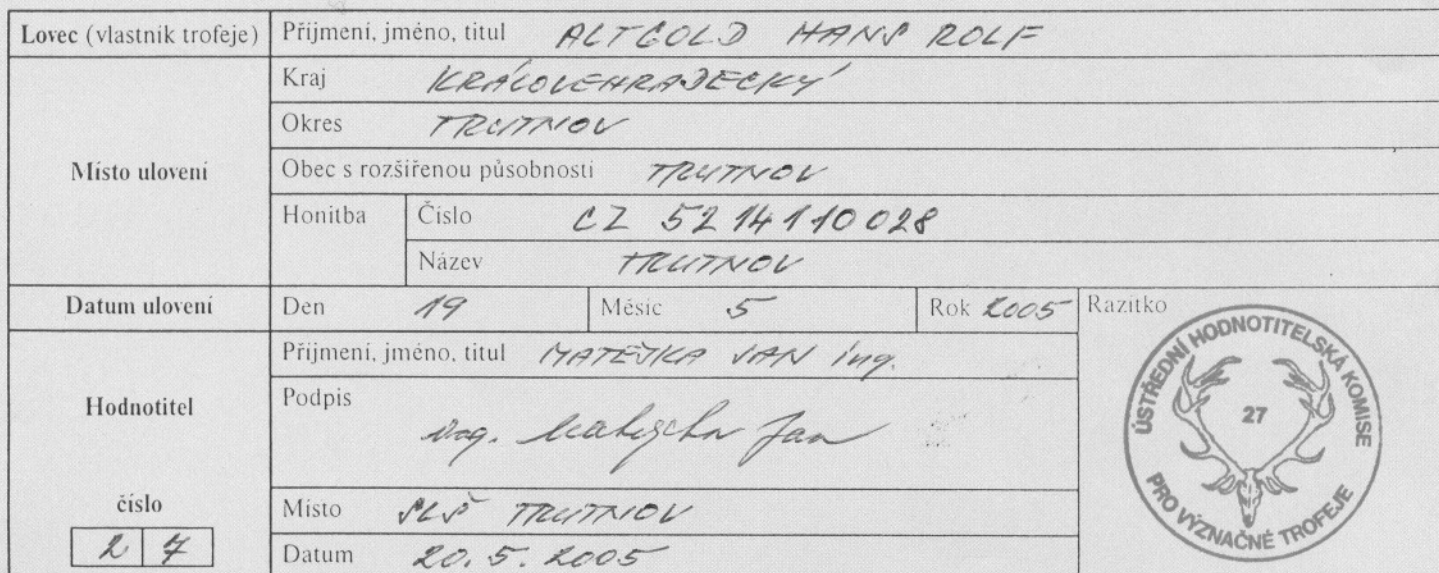 Lovec (vlastník trofeje) Příjmení, jméno, titul ALTGOLD HANS ROLF
Místo ulovení
Kraj KRÁLOVEHRADECKÝ
Okres TRUTNOV
Obec s rozšířenou působností TRUTNOV
Honitba Číslo CZ 5214110028
Název TRUTNOV
Datum ulovení Den 19 Měsíc 5 Rok 2005 Razítko
Hodnotitel
Příjmení, jméno, titul MATĚJKA JAN ing.
Podpis ing. Jan
číslo 27
Místo SLŠ TRUTNOV
Datum 20.5.2005
ÚSTŘEDNÍ HODNOTITELSKÁ KOMISE
27
PRO VÝZNAČNÉ TROFEJE